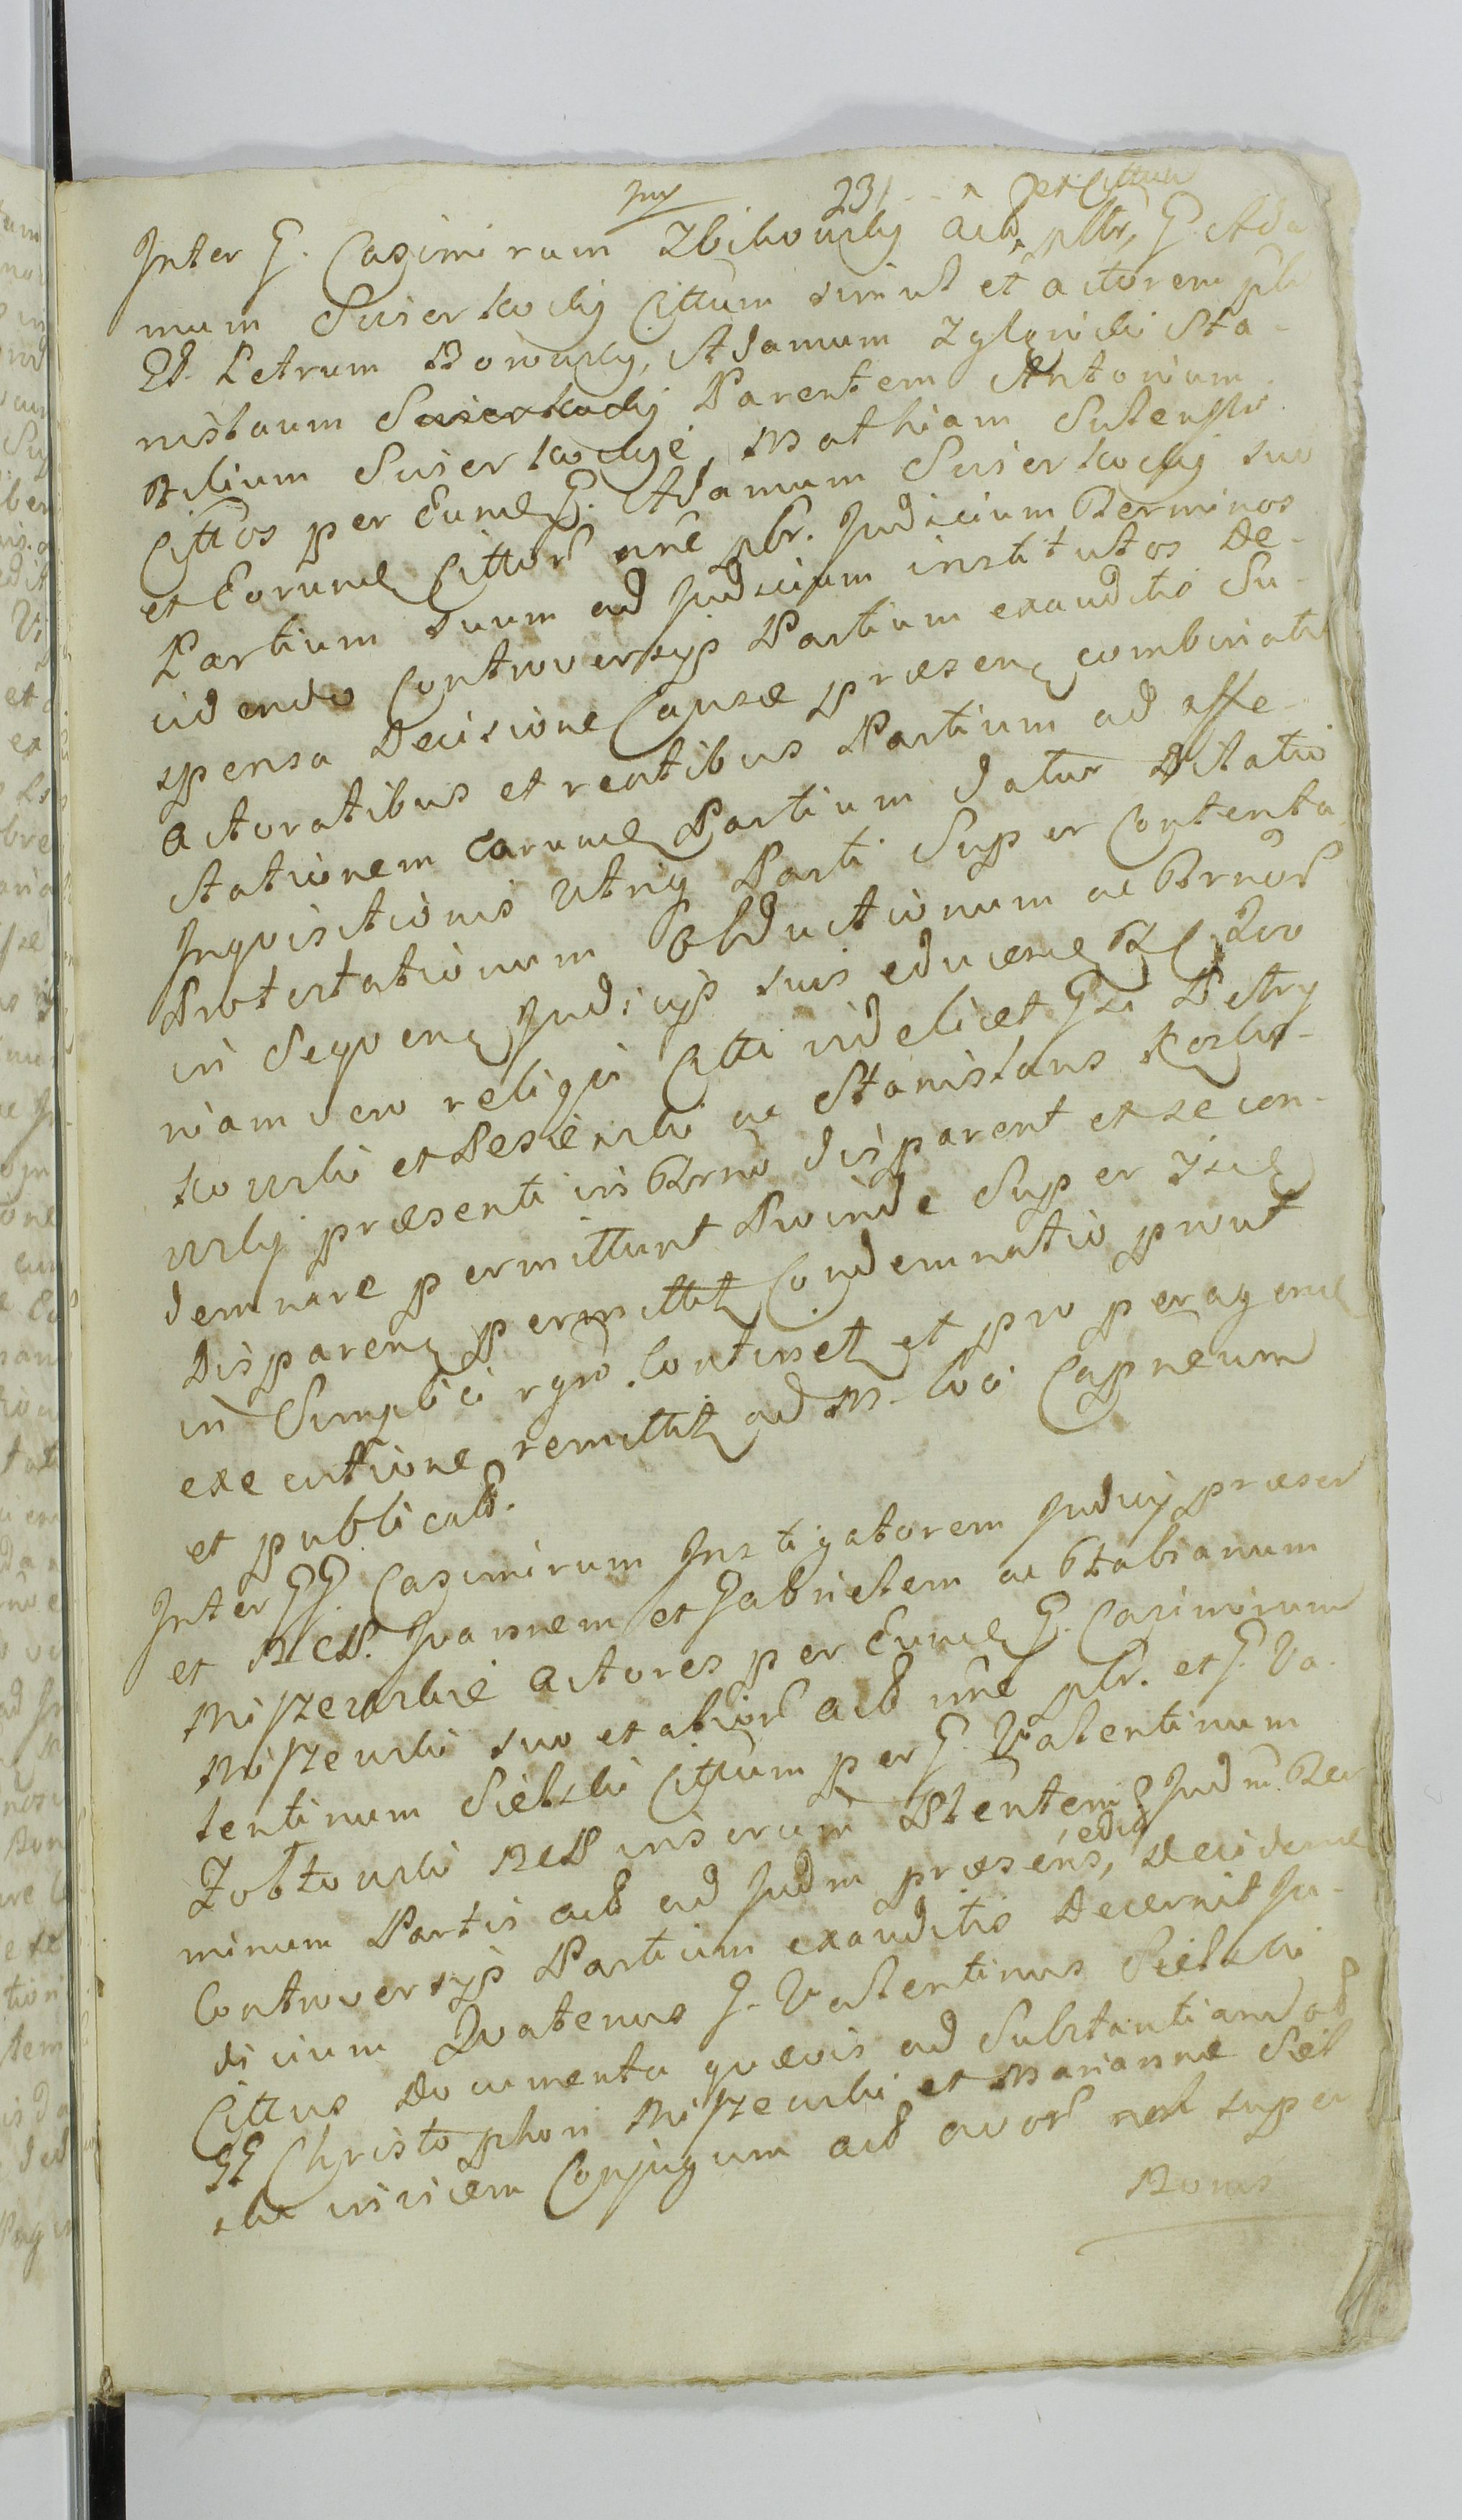 231 et Cittum
Inter G. Casimirum Zbikowsky actr, pltr, G. Ada
mum Swierkocky Cittum simul et actorem plr
Et Petrum Bowsky, Adamum Zglenicki Sta-
nislaum Swierkocky Parentem Antonium
Filium Swierkockie, Mathiam
Cittos per Eund G. Adamum Swierkocky suo
et Eorund Cittor nne plr. Judicium Terminos
Partium suum ad Judicium institutos De-
cidendo Controversys Partium exauditis Su-
spensa Decisione Causæ præsen combinatis
Actoratibus et reatibus Partium ad affe-
ctationem earund Partium datur Dilatio
Inquisitionis utriq Parti Super Contenta
Protestationum Obductionum ac Trnor
in Sequen Judicys suis educend Quo
niam vero reliqui Citti videlicet Gsi Petrg
kowski et Pesienski ac Stanislaus Kozlo-
wsky præsenti in Trno disparent et se con-
demnare permittunt Proinde Super Iisd
Disparen permittit Condemnatio prout
in Simplici rgro. Continet et pro peragend
executione remittit ad M. loci Capneum
et publicatt.
Inter GG. Casimirum Instigatorem Judicy præsen
et NCN. Joannem et Gabrielem ac Fabianum
Miszewskie Actores per Eund G. Casimirum
Miszewski suo et alior act nne plr. et G. Va-
lentinum Sielski Cittum per G. Valentinum
Zoltowski NCN inscrum Plentem Judm. Ter
minum Partis act ad Judm præsens, edit Decidend
Controversys Partium exauditis Decernit Ju-
dicium Quatenus G. Valentinus Sielski
Cittus Documenta quævis ad Substantiam ol
GG Christophori Miszewski et Marianne Siel
skie invicem Conjugum act avor nol super
Bonis